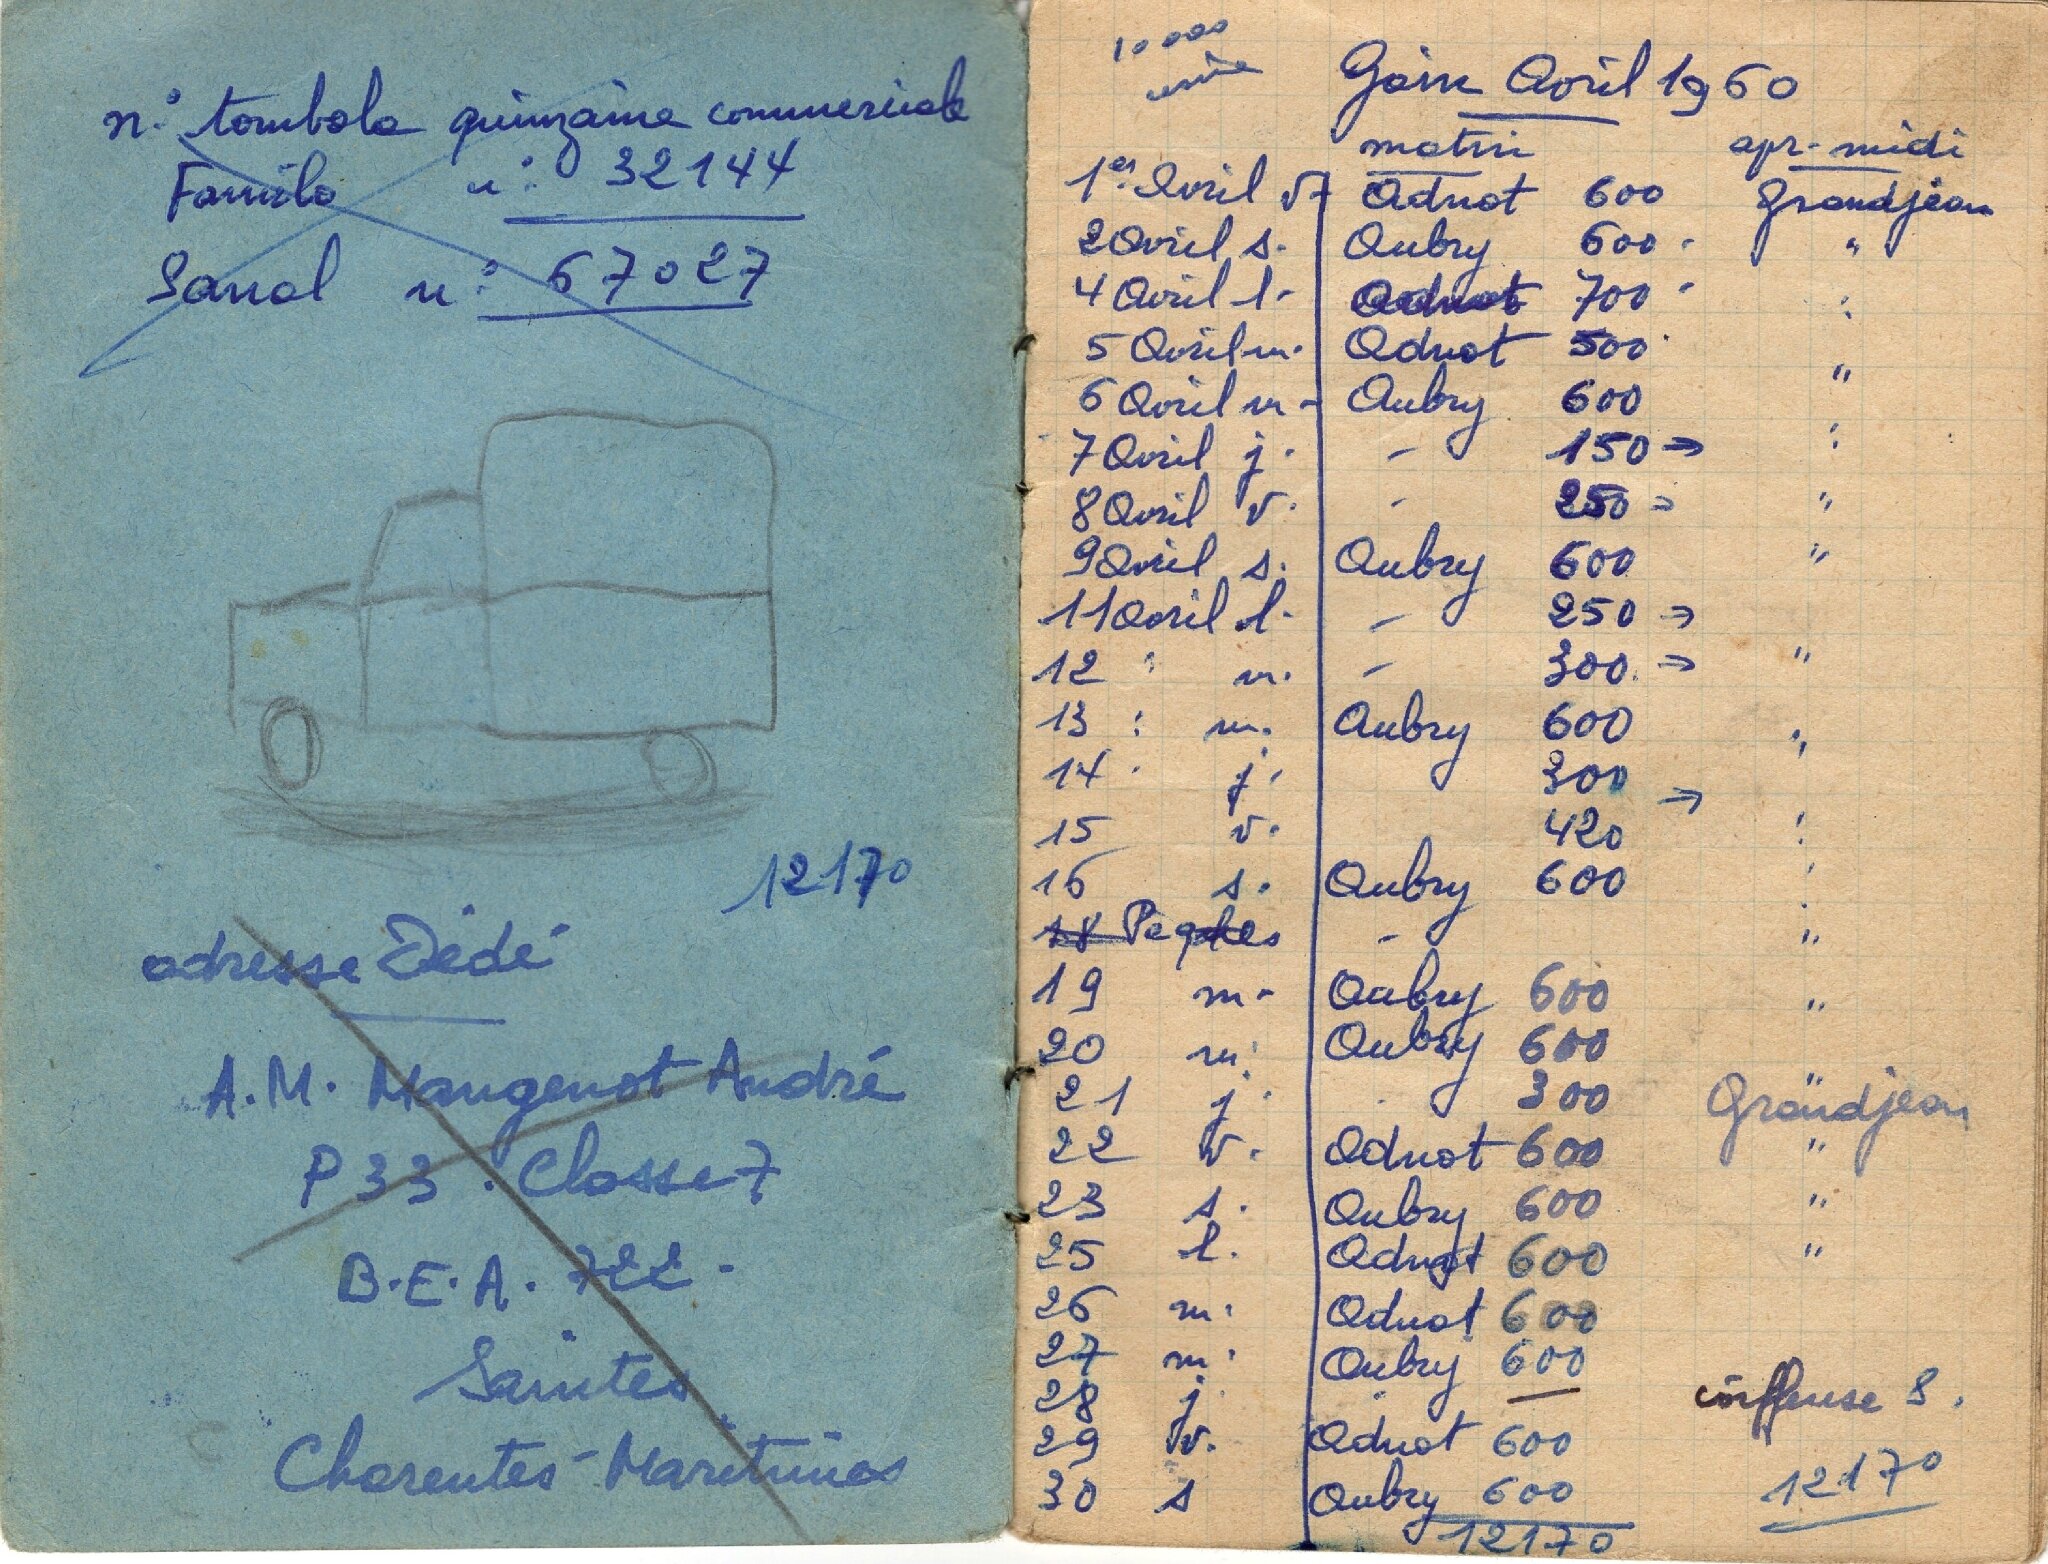 n.° tombola quinzaine commerciale
Familo n° 32144
Sanal n° 67027
12170
adresse Dédé
A.M. Mangenot André
P 33 . Classe 7
B.E.A. 722 -
Saintes
Charentes-Maritimes
10 000
Gain Avril 1960
matin apr-midi
1er Avril v. Adnot 600 Grandjean
2 Avril s. Aubry 600 "
4 Avril l. Adnot 700 "
5 Avril m. Adnot 500 "
6 Avril m - Aubry 600
7 Avril j. - 150 → "
8 Avril v. - 250 → "
9 Avril s. Aubry 600 "
11 Avril l. - 250 →
12 " m. - 300 → "
13 " m. Aubry 600 "
14 " j. 300
→
15 v. 420 "
16 s. Aubry 600 "
18 Paques - "
19 m - Aubry 600 "
20 m. Aubry 600 "
21 j. 300 Grandjean
22 v. Adnot 600 "
23 s. Aubry 600 "
25 l. Adnot 600 "
26 m. Adnot 600
27 m. Aubry 600
28 j. - coiffeuse S.
29 v. Adnot 600
30 s Aubry 600 12170
12170